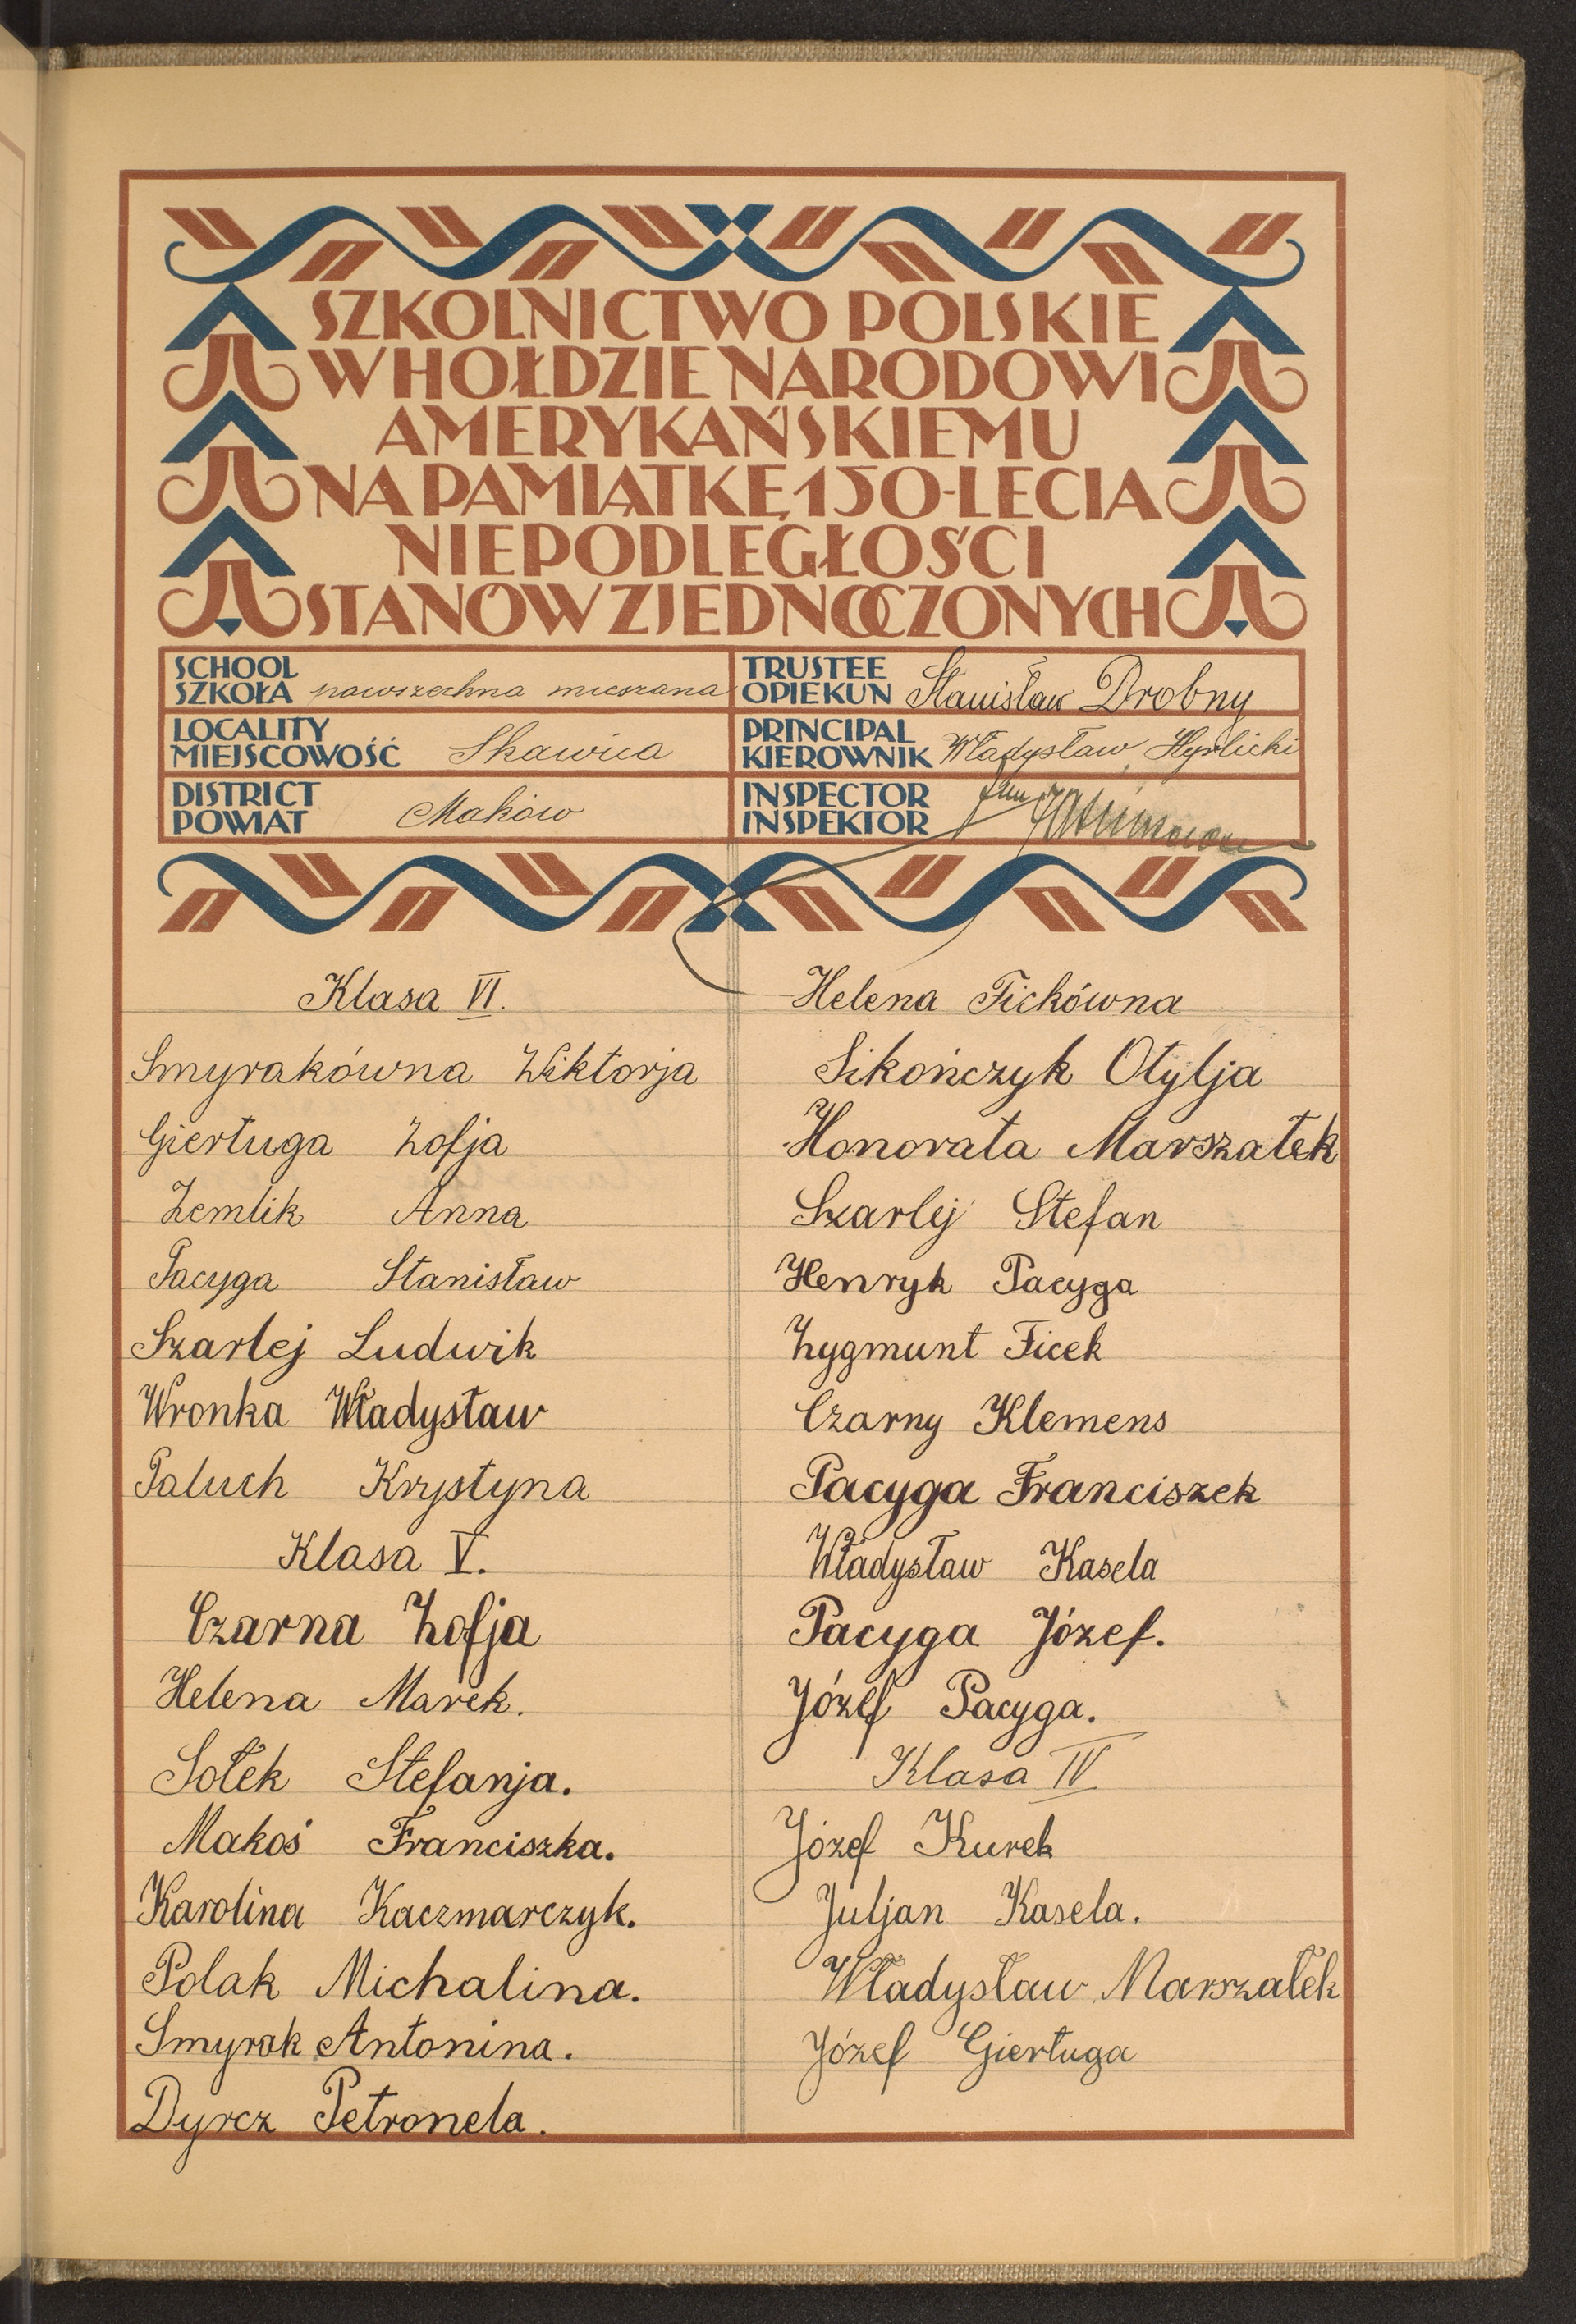 SZKOLNICTWO POLSKIE
W HOŁDZIE NARODOWI
AMERYKAŃSKIEMU
NA PAMIĄTKĘ 150-LECIA
NIEPODLEGŁOŚCI
STANÓW ZJEDNOCZONYCH
SCHOOL
SZKOŁA powszechna mieszana
TRUSTEE
OPIEKUN Stanisław Drobny
LOCALITY
MIEJSCOWOŚĆ Skawica
PRINCIPAL
KIEROWNIK Władysław
DISTRICT
POWIAT Maków
INSPECTOR
INSPEKTOR
Klasa VI.
Smyrakówna Wiktorja
Gierługa Zofja
Zemlik Anna
Pacyga Stanisław
Szarlej Ludwik
Wronka Władysław
Paluch Krystyna
Klasa V.
Czarna Zofja
Helena Marek.
Sołek Stefanja.
Makoś Franciszka.
Karolina Kaczmarczyk.
Polak Michalina.
Smyrak Antonina.
Dyrcz Petronela.
Helena Fickówna
Sikończyk Otylja
Honorata Marszałek
Szarlej Stefan
Henryk Pacyga
Zygmunt Ficek
Czarny Klemens
Pacyga Franciszek
Władysław Kasela
Pacyga Józef.
Józef Pacyga.
Klasa IV
Józef Kurek
Juljan Kasela.
Władysław Marszałek
Józef Gierługa